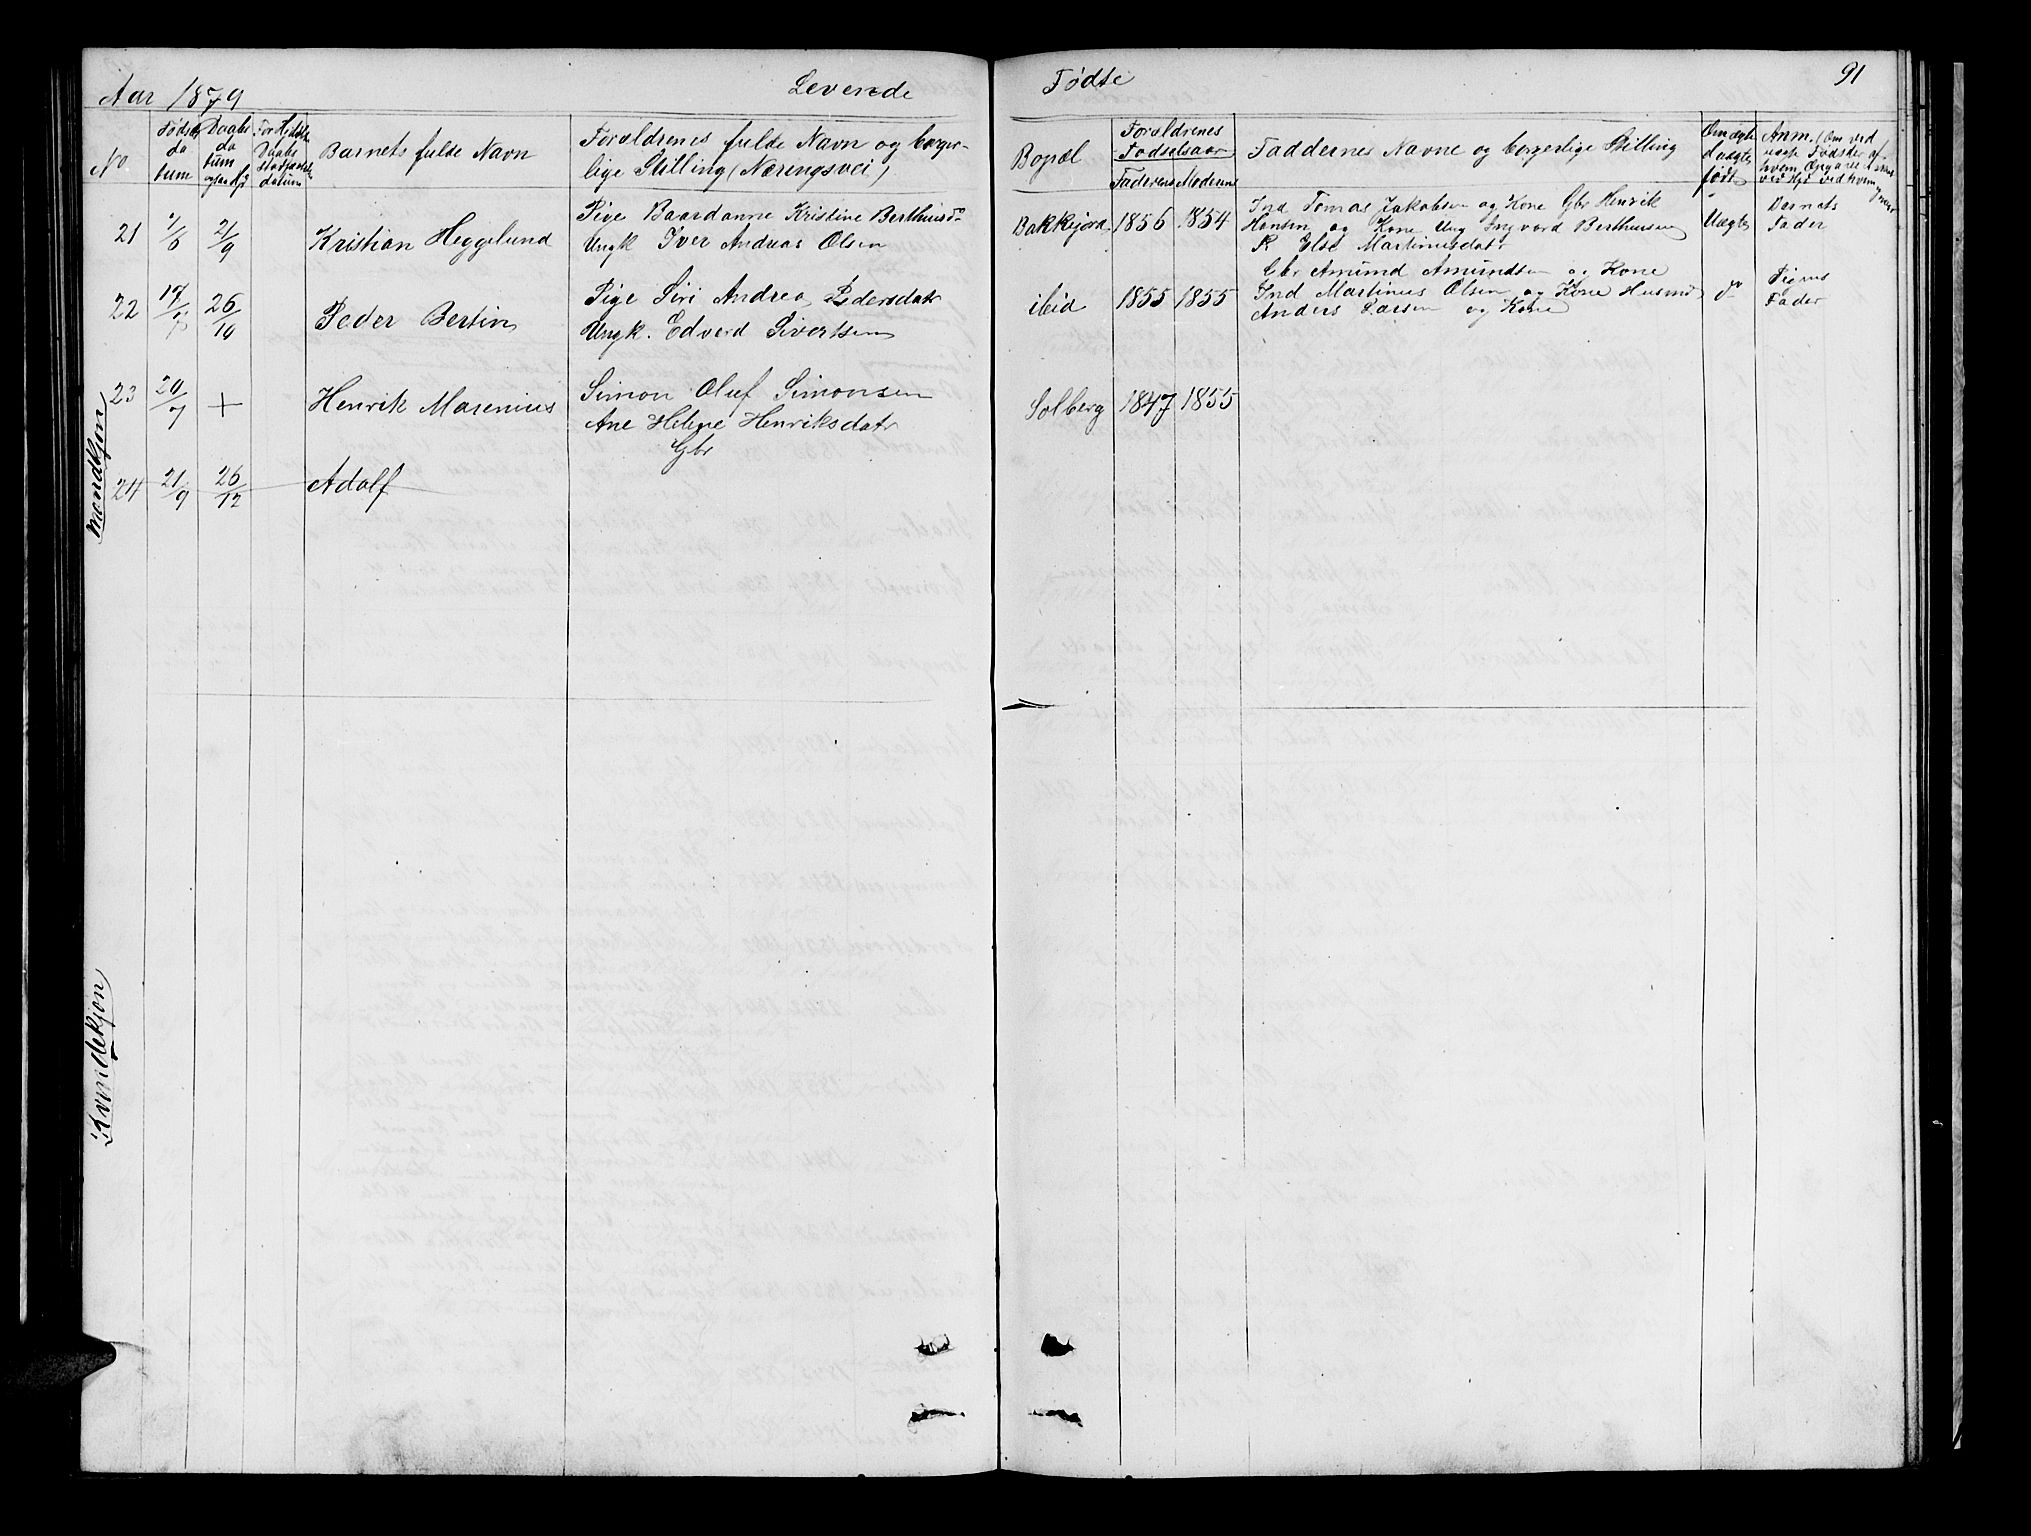 Aar 1879
Levende
Fødte
91
No
Fødsels da tum
Daabs da tum
Daabs
datum
Barnets fulde Navn
Forældrenes fulde Navn og borger-
lige Stilling (Næringsvei)
Bopæl
Forældrenes
Fødselsaar
Faderens Moderens
Faddernes Navne og borgerlige Stilling
Om ægte
uægte
født
Anm. (Om ved
uægte Fødsler af
hvem Opgave
21
21/9
Kristian Heggelund
Pige Baardanne Kristine Berthusdr
Ungk Iver Andreas Olsen
Bakkejord
1856 1854
Ind Tomas Jakobsen og Kone Gbr Henrik
Hansen og Kone Ung Ingvard Berthusen
P. Else Martinusdatr
Uægte
Barnets
Fader
22
26/10
Peder Bertin
Pige Siri Andrea Pedersdatr
Ungk. Edvard Sivertsen
ibid
1855 1855
Gbr Amund Amundsen og Kone
Ind Martinus Olsen og Kone Husmd
Anders Larsen og Kone
do
Pigens
Fader
Mandkjøn
23
20/7
+
Henrik Marenius
Simon Oluf Simonsen
Ane Helene Henriksdatr
Gbr
Solberg
1847 1855
24
21/9
26/12
Adolf
Kvindekjøn